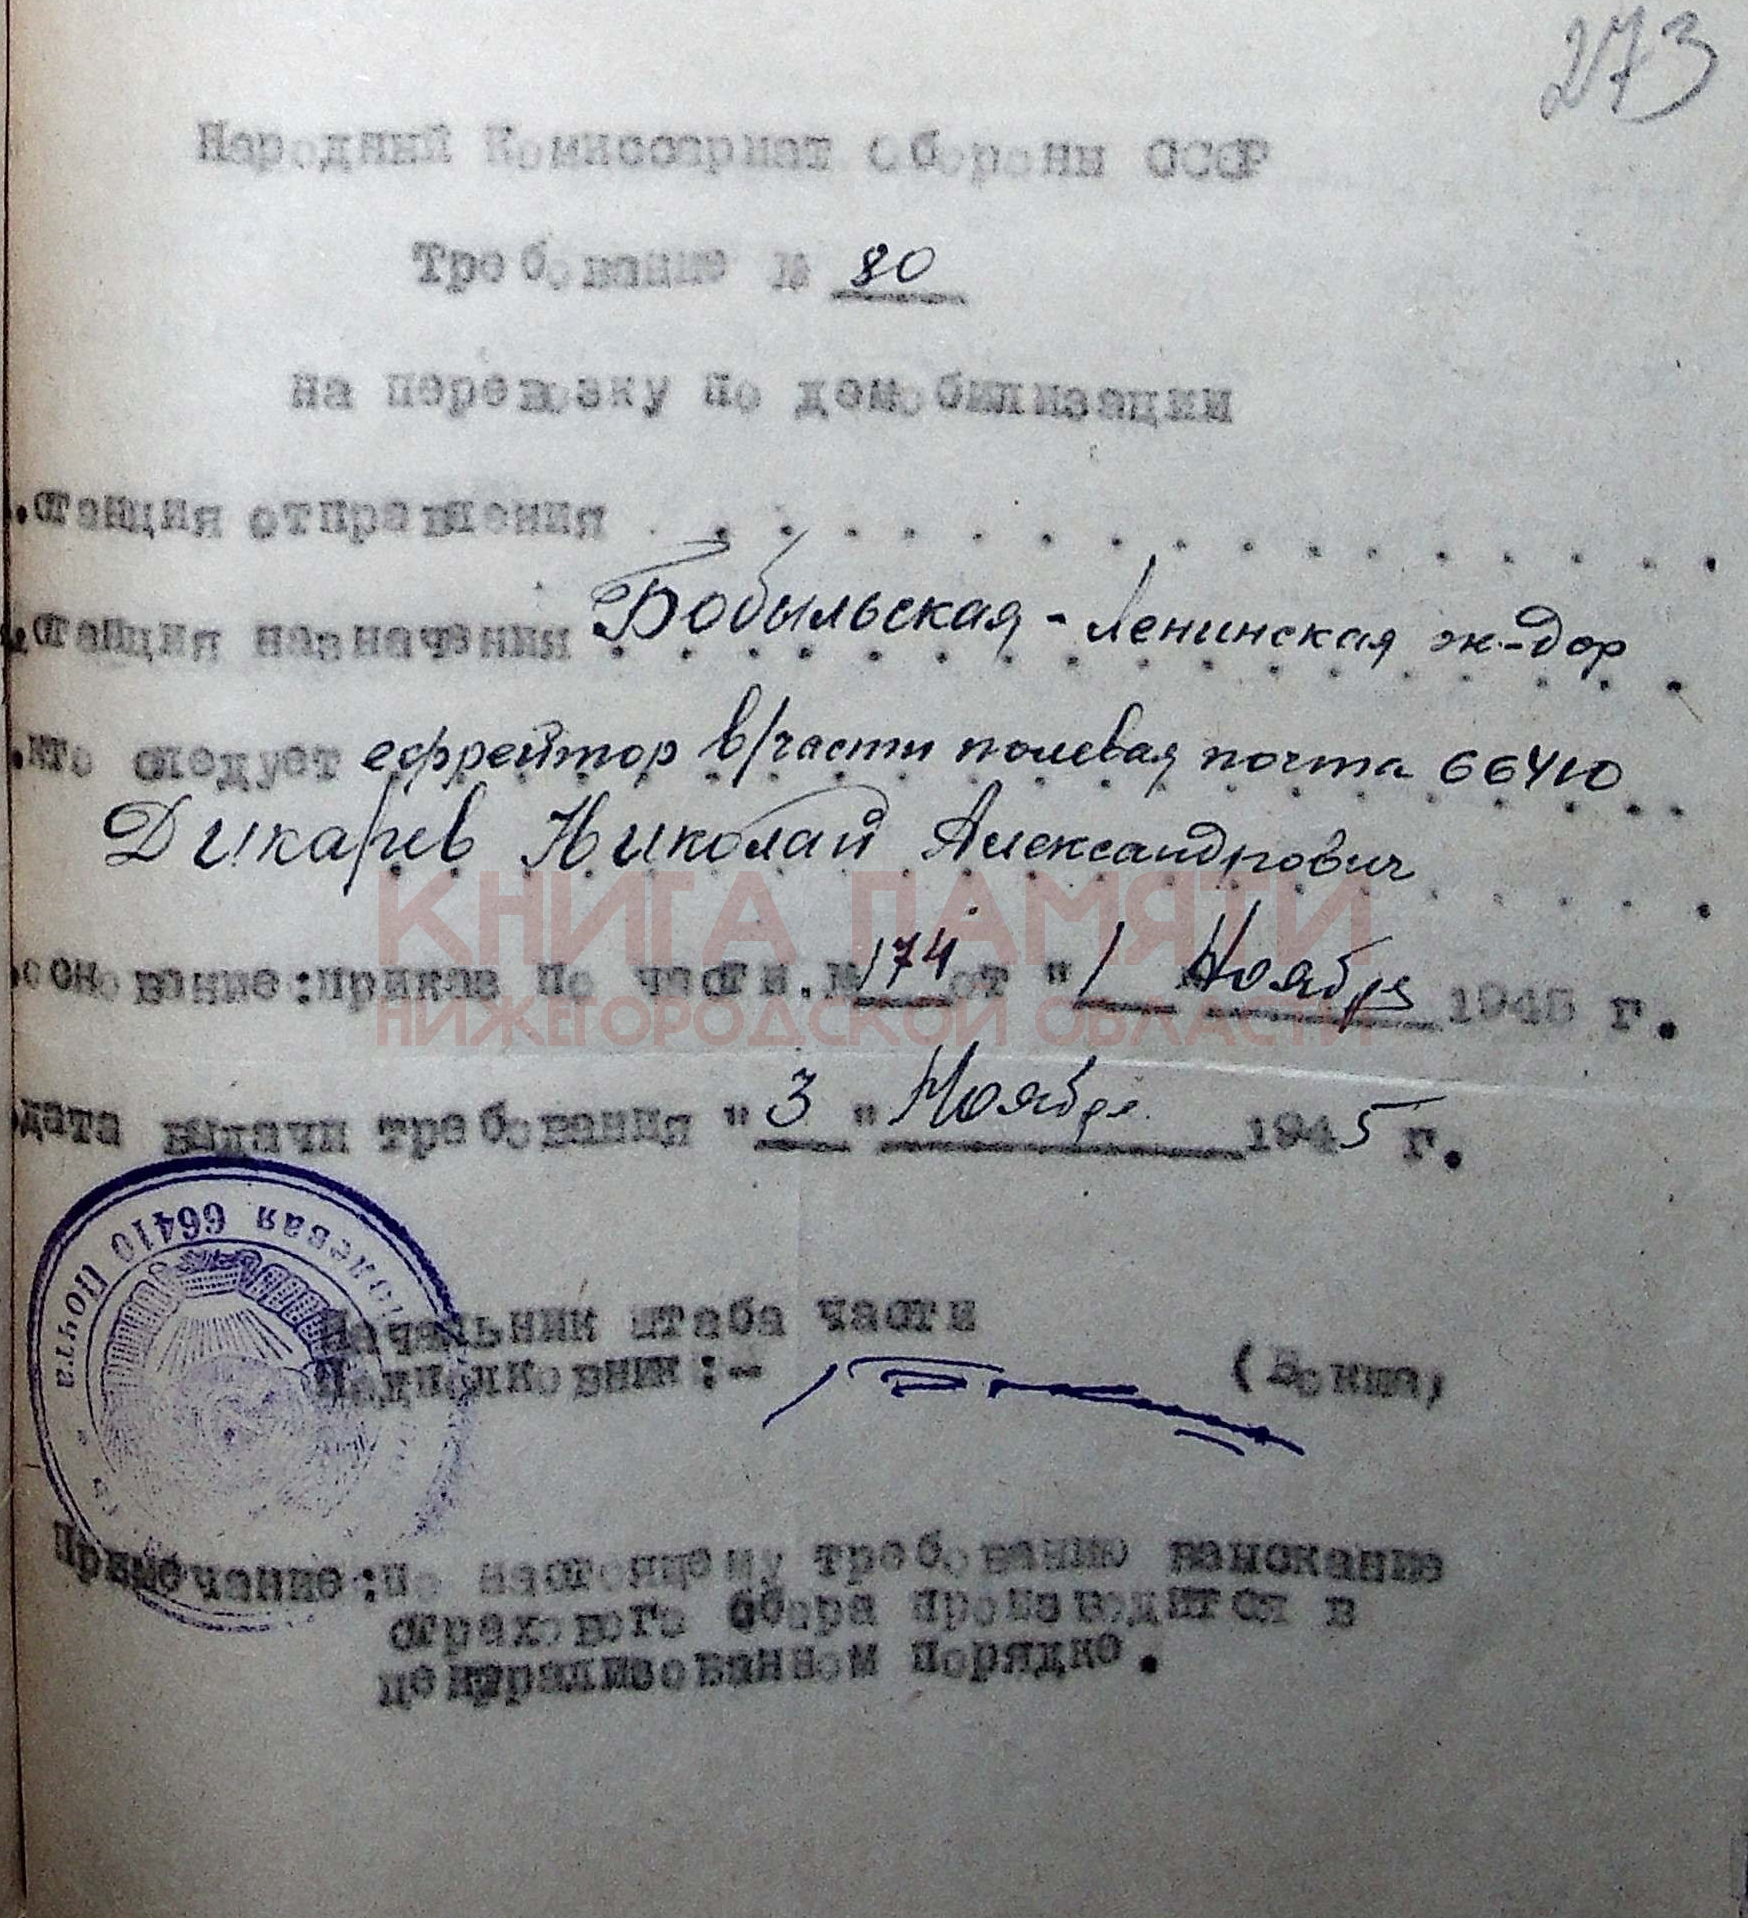 273
Народный Комиссариат Обороны СССР
Требование № 80
на перевозку по демобилизации
.станция отправления . . . . . . . . . . . . . . . .
.станция назначения Бобыльская - Ленинская ж.-дор
.кто следует ефрейтор в/части полевая почта 66410
Дикарев Николай Александрович
КНИГА ПАМЯТИ
.основание:приказ по части.№ 174 от "1" Ноября 1945 г.
НИЖЕГОРОДСКОЙ ОБЛАСТИ
дата выдачи требования "3" Ноября 1945 г.
Полевая 66410 Почта
Начальник штаба части
Подполковник:-
Примечание:по настоящему требованию взыскание
страхового сбора производится в
централизованном порядке.